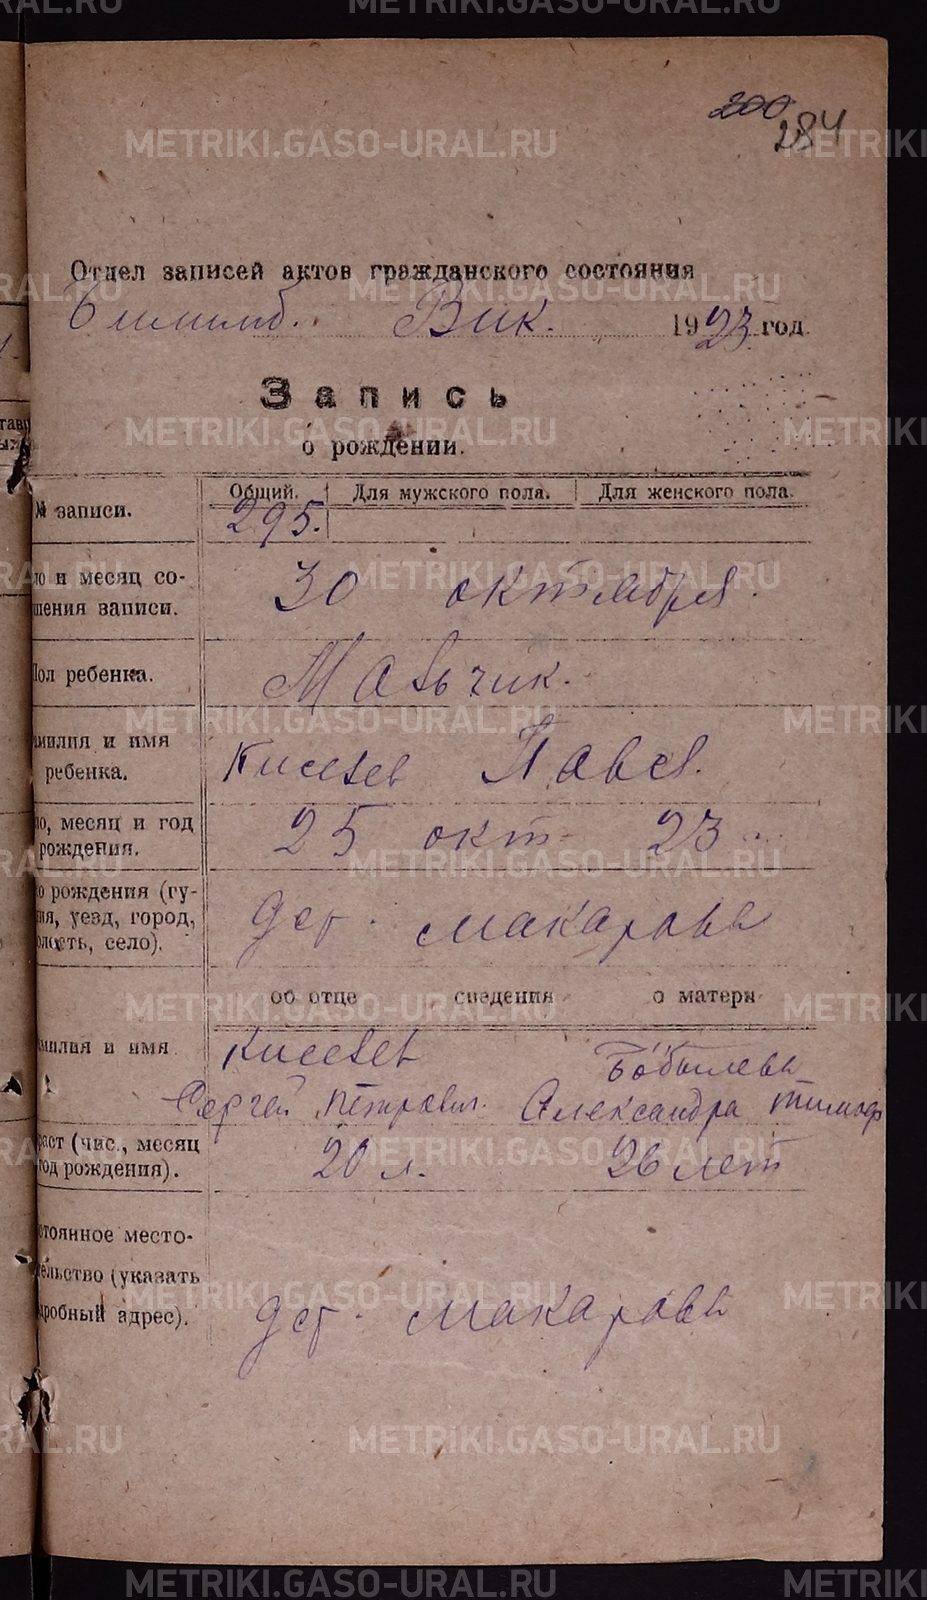 200
284
Отдел записей актов гражданского состояния
Билимб. Вик. 1923 год
Запись
о рождении.
Общий. Для мужского пола. Для женского пола.
№ записи. 295.
ло и месяц со-
шения записи. 30 октября.
Пол ребенка. Мальчик.
амилия и имя
ребенка. Киселев Павел.
ло, месяц и год
рождения. 25 окт 23
о рождения (гу-
ния, уезд, город,
олость, село). дер. Макарова
об отце сведения о матери
амилия и имя Киселев Бобылева
Сергей Петрович. Александра Тимоф
раст (чис., месяц
год рождения). 20 л. 26 лет
стоянное место-
ельство (указать
дробный адрес). дер. Макарова
METRIKI.GASO-URAL.RU